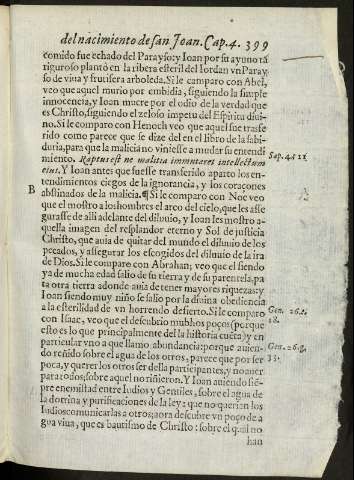 del nacimiento de san Ioan. Cap. 4. 399
comido fue echado del Parayso: y Ioan por su ayuno tã
riguroso plantó en la ribera esteril del Iordan vn Paray
so de viua y frutifera arboleda. Si le comparo con Abel,
veo que aquel murio por embidia, siguiendo la simple
innocencia, y Ioan muere por el odio de la verdad que
es Christo, siguiendo el zeloso impetu del Espiritu diui
no. Si le comparo con Henoch veo que aquel fue trasfe
rido como parece que se dize del en el libro de la sabi
duria, para que la malicia no viniesse a mudar su entendi
miento. Raptus est ne malitia immutaret intellectum
eius. Y Ioan antes que fuesse transferido aparto los en-
tendimientos ciegos de la ignorancia, y los coraçones
obstinados de la malicia. ¶ Si le comparo con Noe veo
que el mostro a los hombres el arco del cielo, que les asse
gurasse de alli adelante del diluuio, y Ioan les mostro a-
quella imagen del resplandor eterno y Sol de justicia
Christo, que auia de quitar del mundo el diluuio de los
pecados, y assegurar los escogidos del diluuio de la ira
de Dios. Si le comparo con Abrahan; veo que el siendo
ya de mucha edad salio de su tierra y de su parentela, pa
ra otra tierra adonde auia de tener mayores riquezas: y
Ioan siendo muy niño se salio por la diuina obediencia
a la esterilidad de vn horrendo desierto. Si le comparo
con Isaac, veo que el descubrio muchos poços (porque
esto es lo que principalmente del la historia cuenta) y en
particular vno a que llamo abundancia: porque auien-
do reñido sobre el agua de los otros, parece que por ser
poca, y querer los otros ser della participantes, y no auer
para todos; sobre aquel no riñeron. Y Ioan auiendo siẽ-
pre enemistad entre Iudios y Gentiles, sobre el agua de
la dotrina y purificaciones de la ley: que no querian los
Iudios comunicarlas a otros; aora descubre vn poço de a
gua viua, que es bautismo de Christo: sobre el qual no
han
Sap. 4. 11
B
Gen. 26. c.
18.
Gen. 26. g.
33.